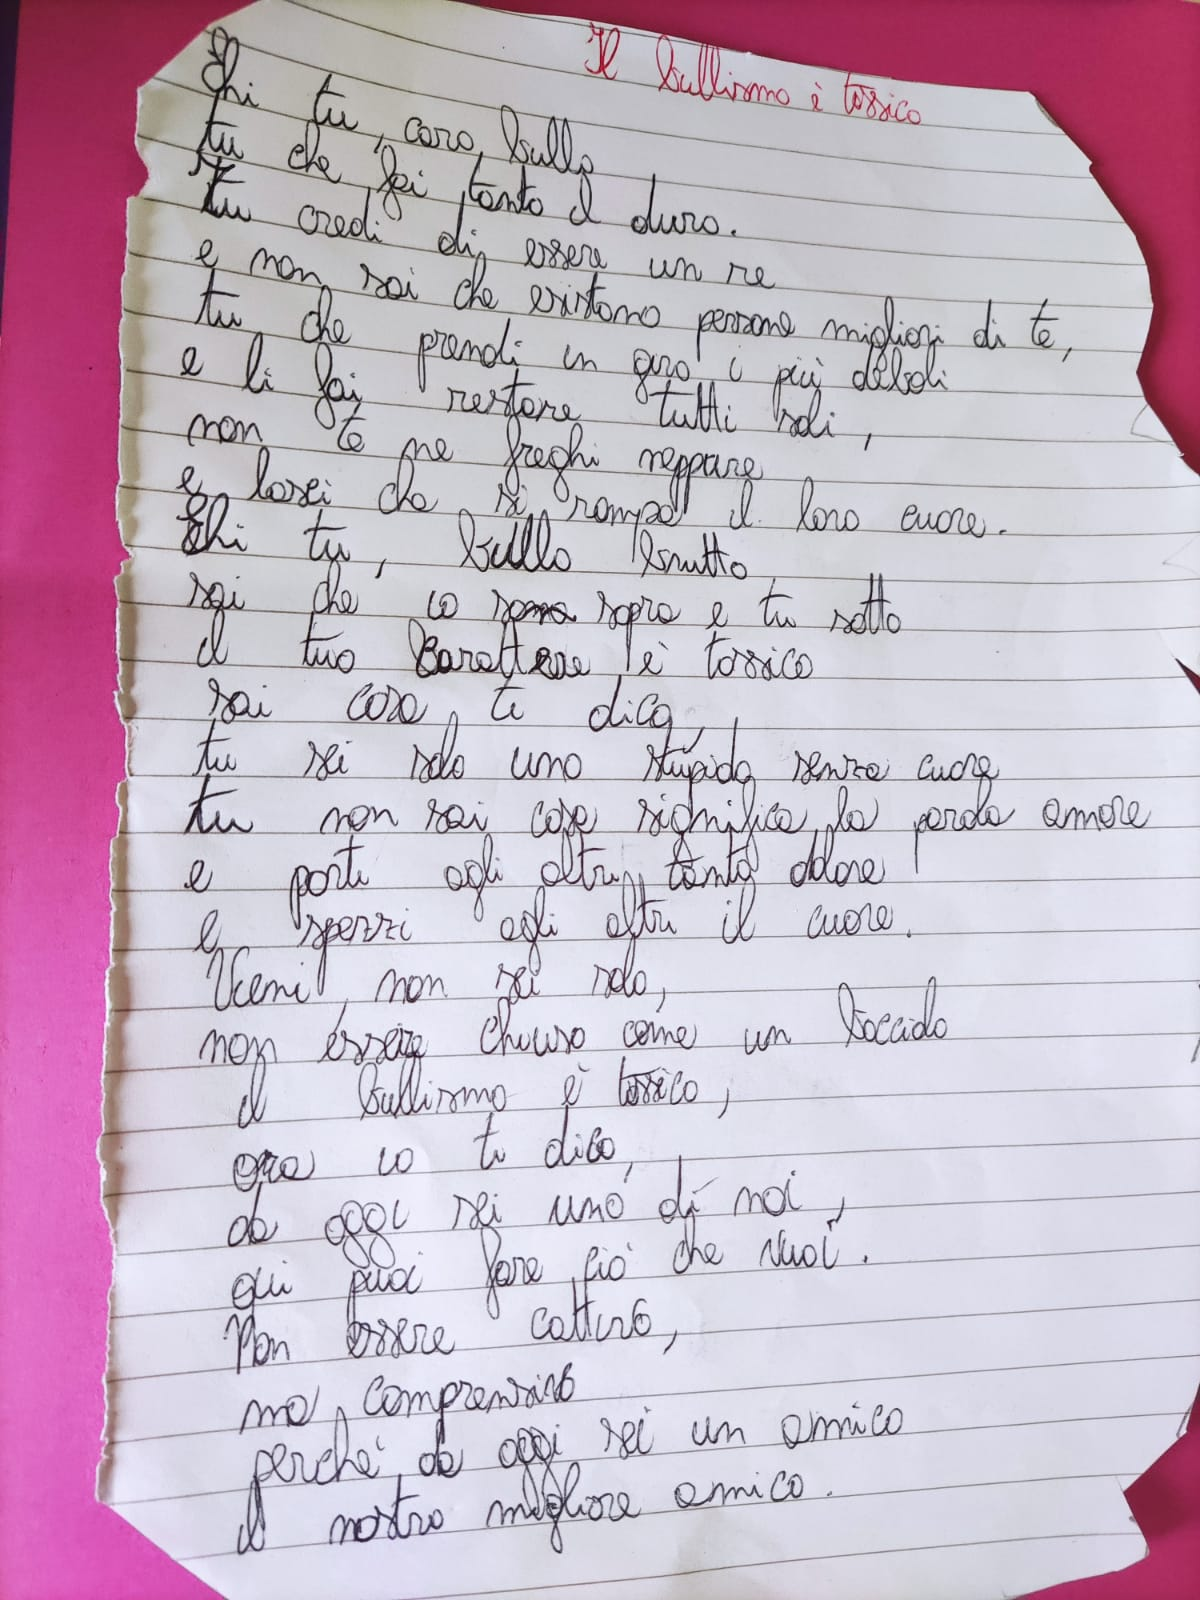 Il bullismo è tossico
Ehi tu, caro bullo
tu che fai tanto il duro.
Tu credi di essere un re
e non sai che esistono persone migliori di te,
tu che prendi in giro i più deboli
e li fai restare tutti soli,
non te ne freghi neppure
e lasci che si rompa il loro cuore.
Ehi tu, bullo brutto,
sai che io sono sopra e tu sotto
il tuo carattere è tossico
sai cosa ti dico,
tu sei solo uno stupido senza cuore
tu non sai cosa significa la parola amore
e porti agli altri tanto dolore
e spezzi agli altri il cuore.
Vieni, non sei solo,
non essere chiuso come un bocciolo
il bullismo è tossico,
ora io ti dico,
da oggi sei uno di noi,
qui puoi fare ciò che vuoi.
Non essere cattivo,
ma comprensivo
perché da oggi sei un amico
il nostro migliore amico.